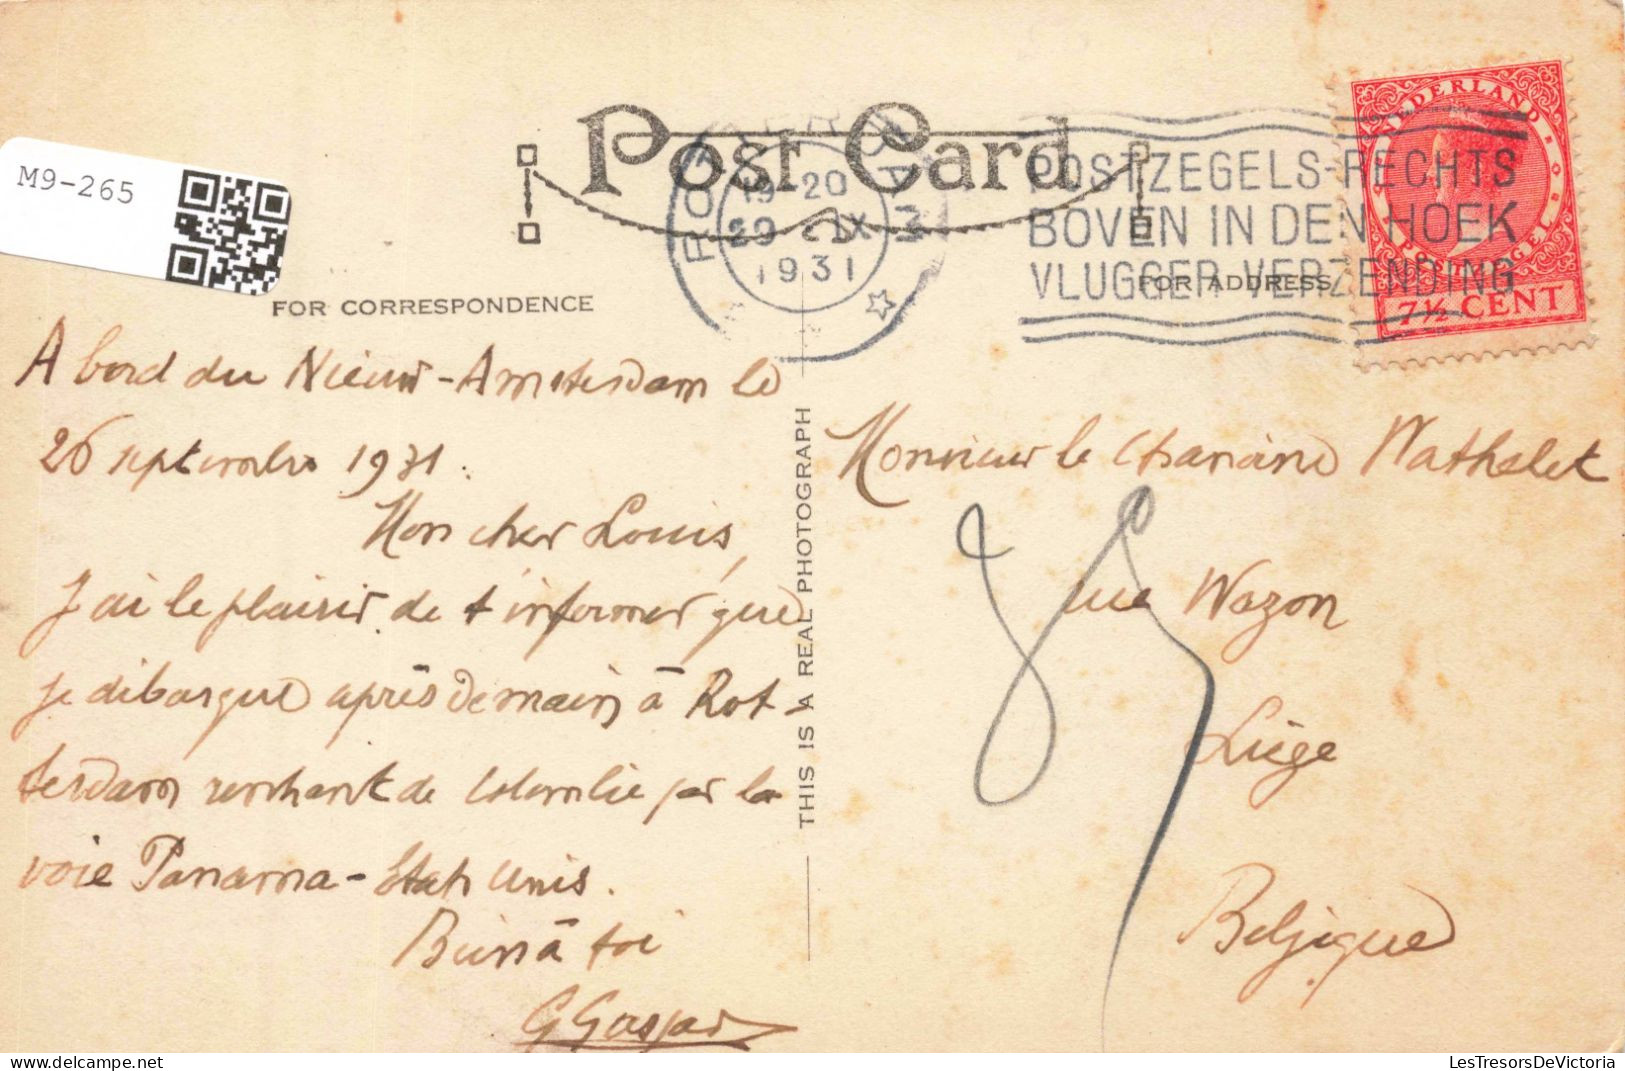 M9-265
Post Card
ROTTERDAM
19-20
29 IX
1931
POSTZEGELS-RECHTS
BOVEN IN DEN HOEK
VLUGGER VERZENDING
NEDERLAND
POSTZEGEL
7½ CENT
FOR CORRESPONDENCE
FOR ADDRESS
A bord du Nieuw-Amsterdam le
26 septembre 1931.
Mon cher Louis,
J'ai le plaisir de t'informer que
je débarque après demain à Rot-
terdam rentrant de Colombie par la
voie Panama-Etats Unis.
Bien à toi
G Gaspar
THIS IS A REAL PHOTOGRAPH
Monsieur le Chanoine Nathalet
rue Wazon
Liège
Belgique
LesTresorsDeVictoria